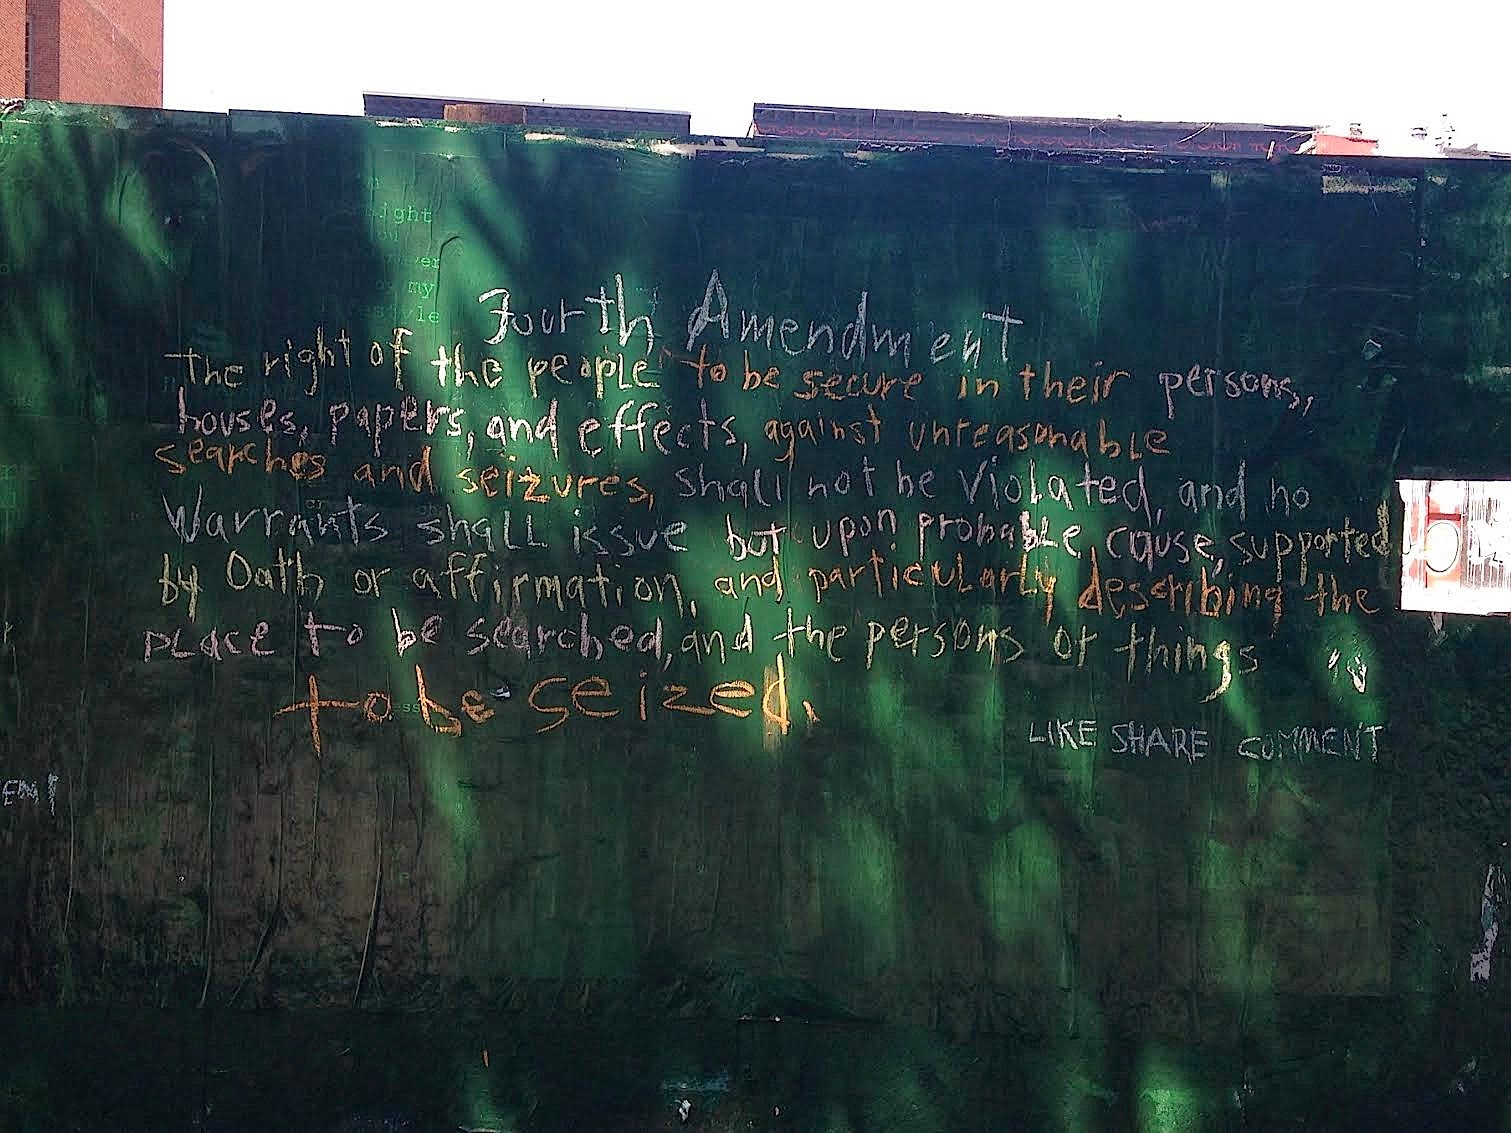 ight
er
my
style
Fourth Amendment
The right of the people to be secure in their persons,
houses, papers, and effects, against unreasonable
searches and seizures, shall not be violated, and no
Warrants shall issue but upon probable cause, supported
by Oath or affirmation, and particularly describing the
place to be searched, and the persons or things
to be seized.
LIKE SHARE COMMENT